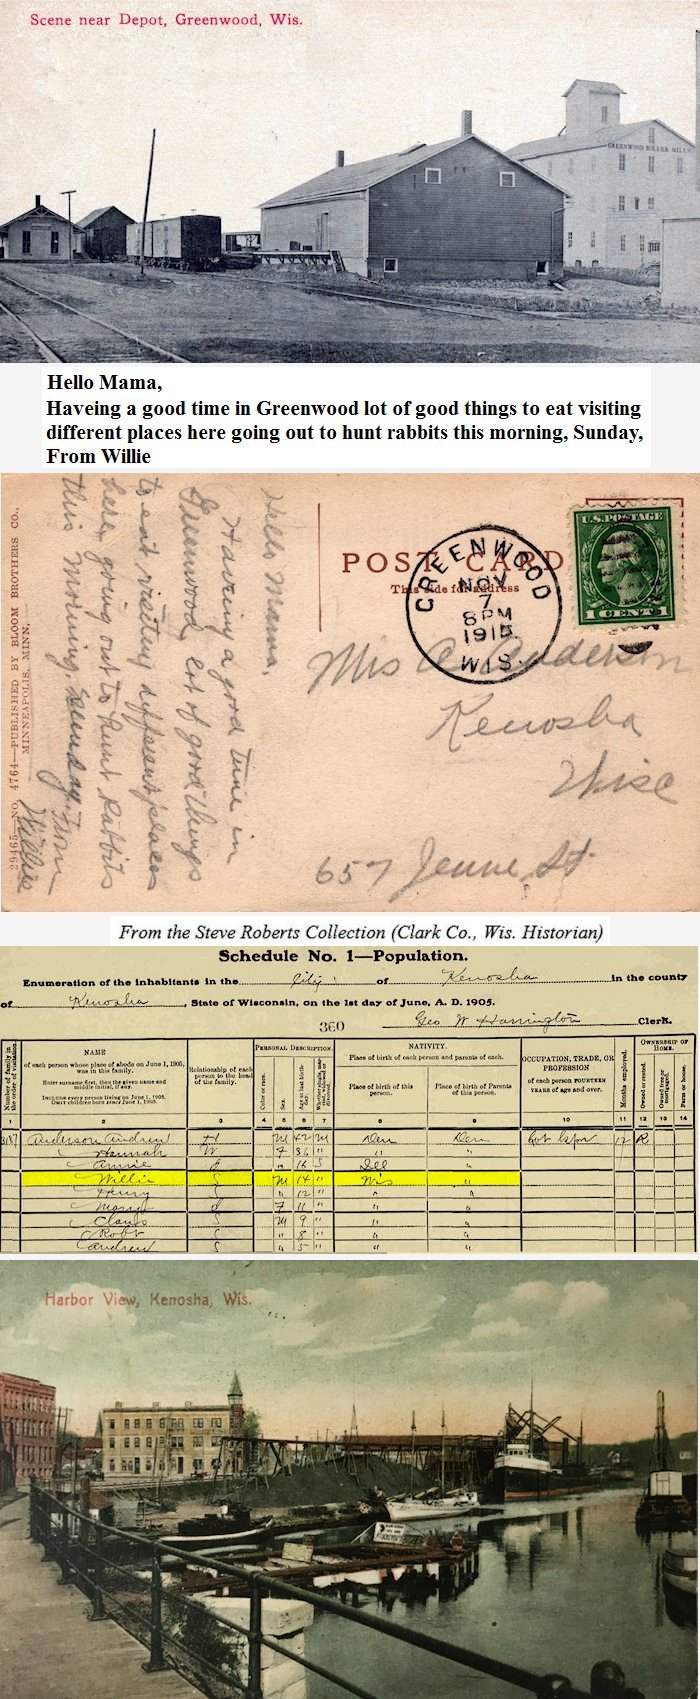 Scene near Depot, Greenwood, Wis.
GREENWOOD ROLLER MILLS
Hello Mama,
Haveing a good time in Greenwood lot of good things to eat visiting
different places here going out to hunt rabbits this morning, Sunday,
From Willie
29465—NO. 4764—PUBLISHED BY BLOOM BROTHERS CO.,
MINNEAPOLIS, MINN.
Hello Mama,
Haveing a good time in
Greenwood, lot of good things
to eat visiting different places
here, going out to hunt Rabbits
this morning, Sunday. From
Willie
POST CARD
This side for address
GREENWOOD
NOV
7
8 PM
1915
WIS.
U.S. POSTAGE
1 CENT 1
Mrs A. Anderson
Kenosha
Wisc
657 Jenne St.
From the Steve Roberts Collection (Clark Co., Wis. Historian)
Schedule No. 1—Population.
Enumeration of the inhabitants in the City of Kenosha in the county
of Kenosha, State of Wisconsin, on the 1st day of June, A. D. 1905.
360 Geo W Harrington Clerk.
Number of family in the order of visitation.
NAME
of each person whose place of abode on June 1, 1905, was in this family.
Enter surname first, then the given name and middle initial, if any.
Include every person living on June 1, 1905. Omit children born since June 1, 1905.
Relationship of each person to the head of the family.
PERSONAL DESCRIPTION.
Color or race.
Sex.
Age at last birthday.
NATIVITY.
Place of birth of each person and parents of each.
Place of birth of this person.
Place of birth of Parents of this person.
OCCUPATION, TRADE, OR PROFESSION
of each person FOURTEEN YEARS of age and over.
Months employed.
OWNERSHIP OF HOME.
Owned or rented.
Owned free or mortgaged.
Farm or house.
1 2 3 4 5 6 7 8 9 10 11 12 13 14
Anderson Andrew H M 42 M Den Den R
Hannah W F 36 " " "
Annie d " 16 S Ill "
Willie S M 14 " Wis "
Henry S " 12 " " "
Mary d F 11 " " "
Claus S M 9 " " "
Robt S " 8 " " "
Andrew S " 5 " " "
Harbor View, Kenosha, Wis.